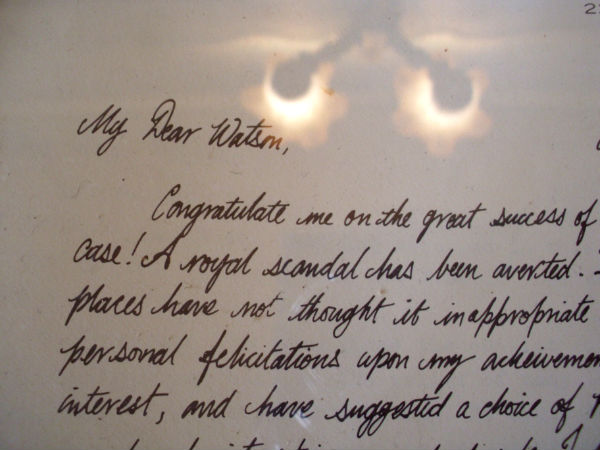 My Dear Watson,
Congratulate me on the great success of
case! A royal scandal has been averted.
places have not thought it inappropriate
personal felicitations upon my acheivemen
interest, and have suggested a choice of